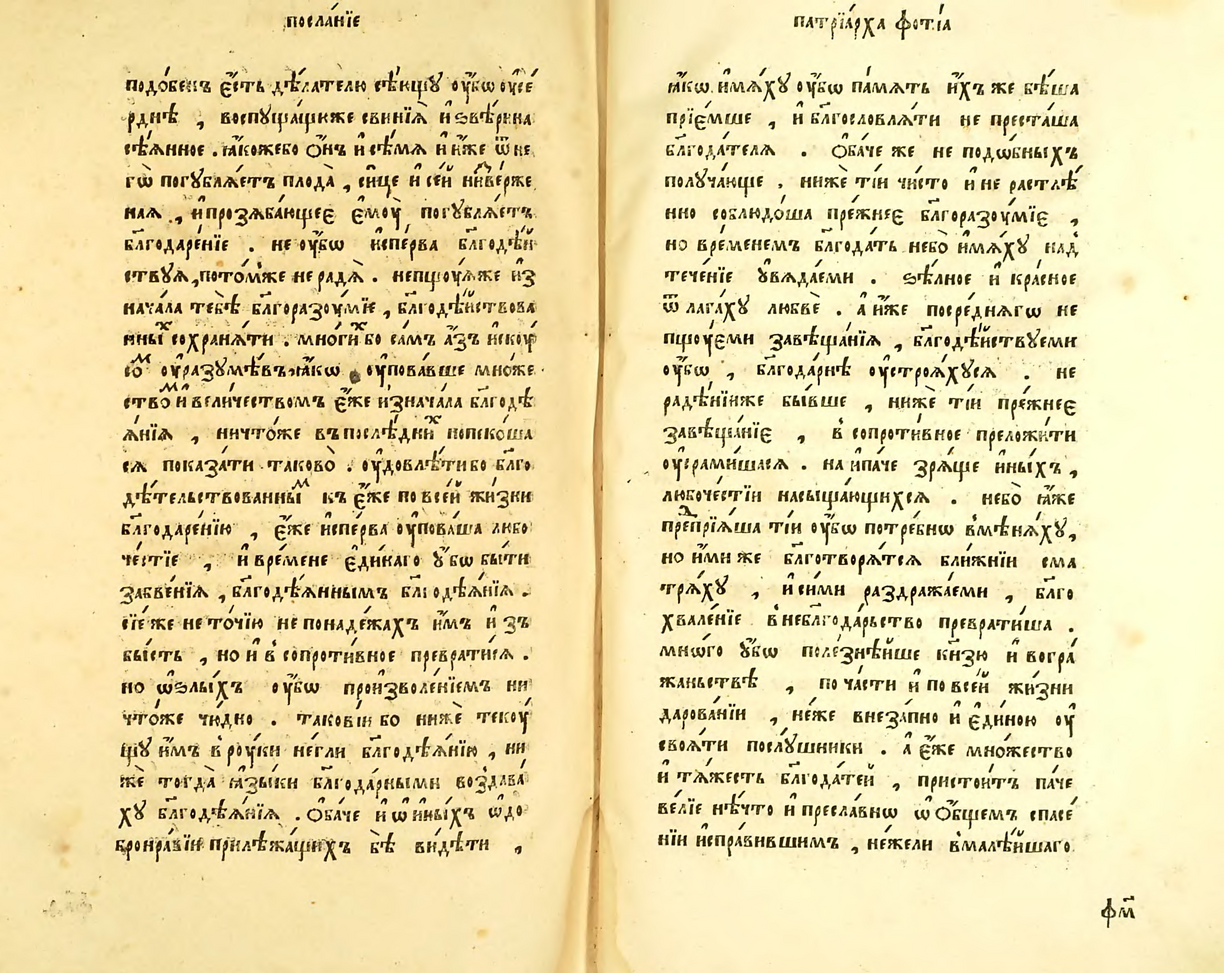 посла́нїе
подо́бенъ є҆́сть дѣ́лателю сѣ́ющꙋ ᲂу҆́бѡ ᲂусе́
рднѣ , воспꙋща́ющиже свинїѧ̀ и҆ ѕвѣ́рина
сѣ́ѧнное . ꙗ҆́коже бо ѻ҆́нъ и҆ сѣ́мѧ и҆ и҆́же ѿ не
гѡ̀ погꙋблѧ́етъ плода̀ , си́це и҆ се́й
наѧ , и҆ прозѧба́ющеє є҆мᲂу̀ погꙋблѧ́етъ
благодаре́нїе . не ᲂу҆́бѡ и҆спе́рва бл҃годѣ́й
ствꙋѧ , пото́мже не радѧ̀ . непщꙋ́ѧже и҆з
нача́ла тебѣ̀ бл҃горазᲂу́мїе , бл҃годѣ́йствова
нны́х сохранѧ́ти . мно́гих бо са́мъ а҆́зъ и҆скᲂу́
сом ᲂу҆разꙋмѣ́въ ꙗ҆́кѡ ᲂу҆пова́вше мно́же
ством и҆ вели́чествомъ є҆́же и҆знача́ла бл҃годѣ
ѧ́нїѧ , ничто́же въ послѣ́дних попеко́ша
сѧ показа́ти таково̀ . ᲂу҆довлѣ́ти бо бл҃го
дѣ́тельствованным къ є҆́же по все́й жи́зни
благодаре́нїю , є҆́же и҆спе́рва ᲂу҆пова́ша любо
че́стїе , и҆ вре́мене є҆ди́наго ᲂу҆́бѡ бы́ти
забве́нїѧ , бл҃годѣ́ѧннымъ бл҃годѣѧ́нїѧ .
сїе́ же не то́чїю не понаде́жахъ и҆́мъ и҆ зъ
бы́сть , но и҆ в сопроти́вное преврати́сѧ .
но ѡ҆ ѕлы́хъ ᲂу҆́бѡ произволе́нїемъ ни
что́же чю́дно . такові́и бо ни́же текᲂу́
щꙋ и҆́мъ в рᲂу́ки не́гли бл҃годѣѧ́нїю , ни
жѐ тогда̀ ꙗ҆зы́ки благода́рными воздава́
хꙋ бл҃годѣѧ́нїѧ . ѻ҆ба́че и҆ ѡ҆ и҆ны́хъ ѡ҆ до
бронра́вїи прилѣжа́щихъ бѣ̀ ви́дѣти ,
патрїа́рха фо́тїа
ꙗ҆́кѡ и҆мѧ́хꙋ ᲂу҆́бѡ па́мѧть и҆́хъ же бѣ́ша
прїе́мше , и҆ бл҃гословлѧ́ти не преста́ша
бл҃года́телѧ . Ѻ҆ба́че же не подѡ́бныхъ
получа́юще , нижѐ ті́и чи́сто и҆ не растлѣ́
нно соблюдо́ша пре́жнеє бл҃горазᲂу́мїє ,
но вре́менемъ бл҃года́ть небо̀ и҆мѧ́хꙋ над
тече́нїе ᲂу҆вѧда́еми . ѕѣ́лное и҆ кра́сное
ѿлага́хꙋ любвѐ . а҆ и҆́же посре́днѧгѡ не
пщᲂу́еми завѣща́нїѧ , бл҃годѣ́йствꙋеми
ᲂу҆́бѡ , благода́рнѣ ᲂу҆строѧ́хꙋсѧ . не
раде́нїиже бы́вше , нижѐ ті́и пре́жнеє
завѣща́нїє , в сопроти́вное преложи́ти
ᲂу҆срами́шасѧ . наипа́че зрѧ́ще и҆ны́хъ ,
любоче́стїи насыща́ющихсѧ . небо̀ ꙗ҆́же
предпрїѧ́ша ті́и ᲂу҆́бѡ потре́бнѡ вмѣнѧ́хꙋ ,
но и҆́ми же бл҃готворѧ́тсѧ бли́жнїи сма
трѧ́хꙋ , и҆ си́ми раздража́еми , бл҃го
хвале́нїе в неблагода́рьство преврати́ша .
мно́го ᲂу҆́бѡ поле́знѣйше кнѧ́зю и҆ вогра́
жаньствѣ , по ча́сти и҆ по все́й жи́зни
дарова́нїи , не́же внеза́пно и҆ є҆ди́ною ᲂу҆
своѧ́ти послꙋ́шники . а҆ є҆́же мно́жество
и҆ тѧ́жесть бл҃года́тей , пристои́тъ па́че
ве́лїе нѣ́что и҆ пресла́внѡ ѡ҆ Ѻ҆́бщемъ спасе́
нїи и҆спра́вившимъ , не́жели вмалѣ́йшаго
фм҃